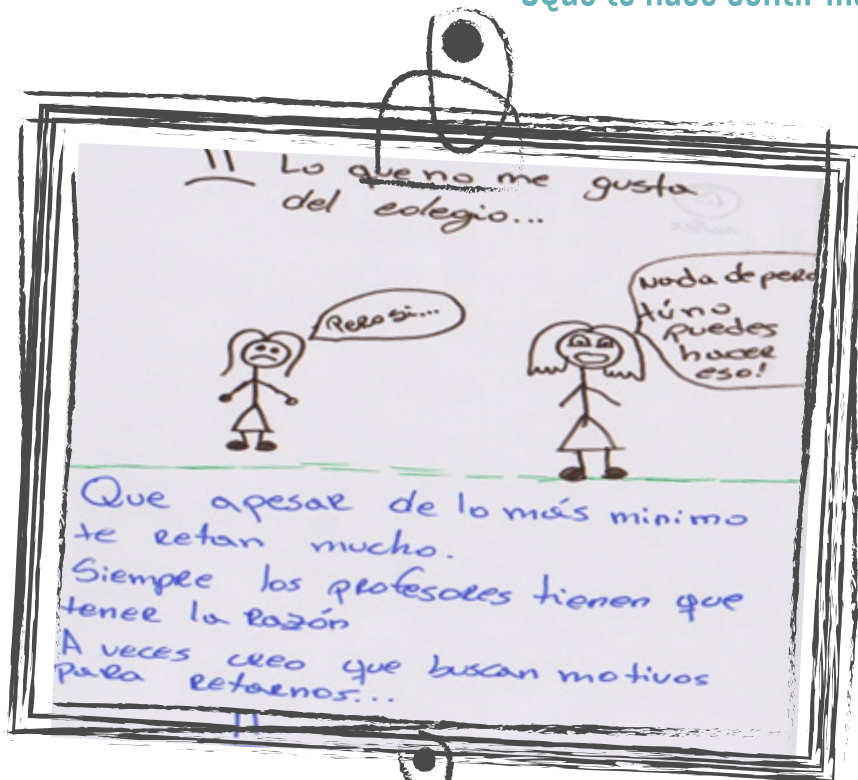 Lo que no me gusta
del colegio...
Pero si...
Nada de pero
tú no
puedes
hacer
eso!
Que apesar de lo más minimo
te retan mucho.
Siempre los profesores tienen que
tener la razón
A veces creo que buscan motivos
para retarnos...